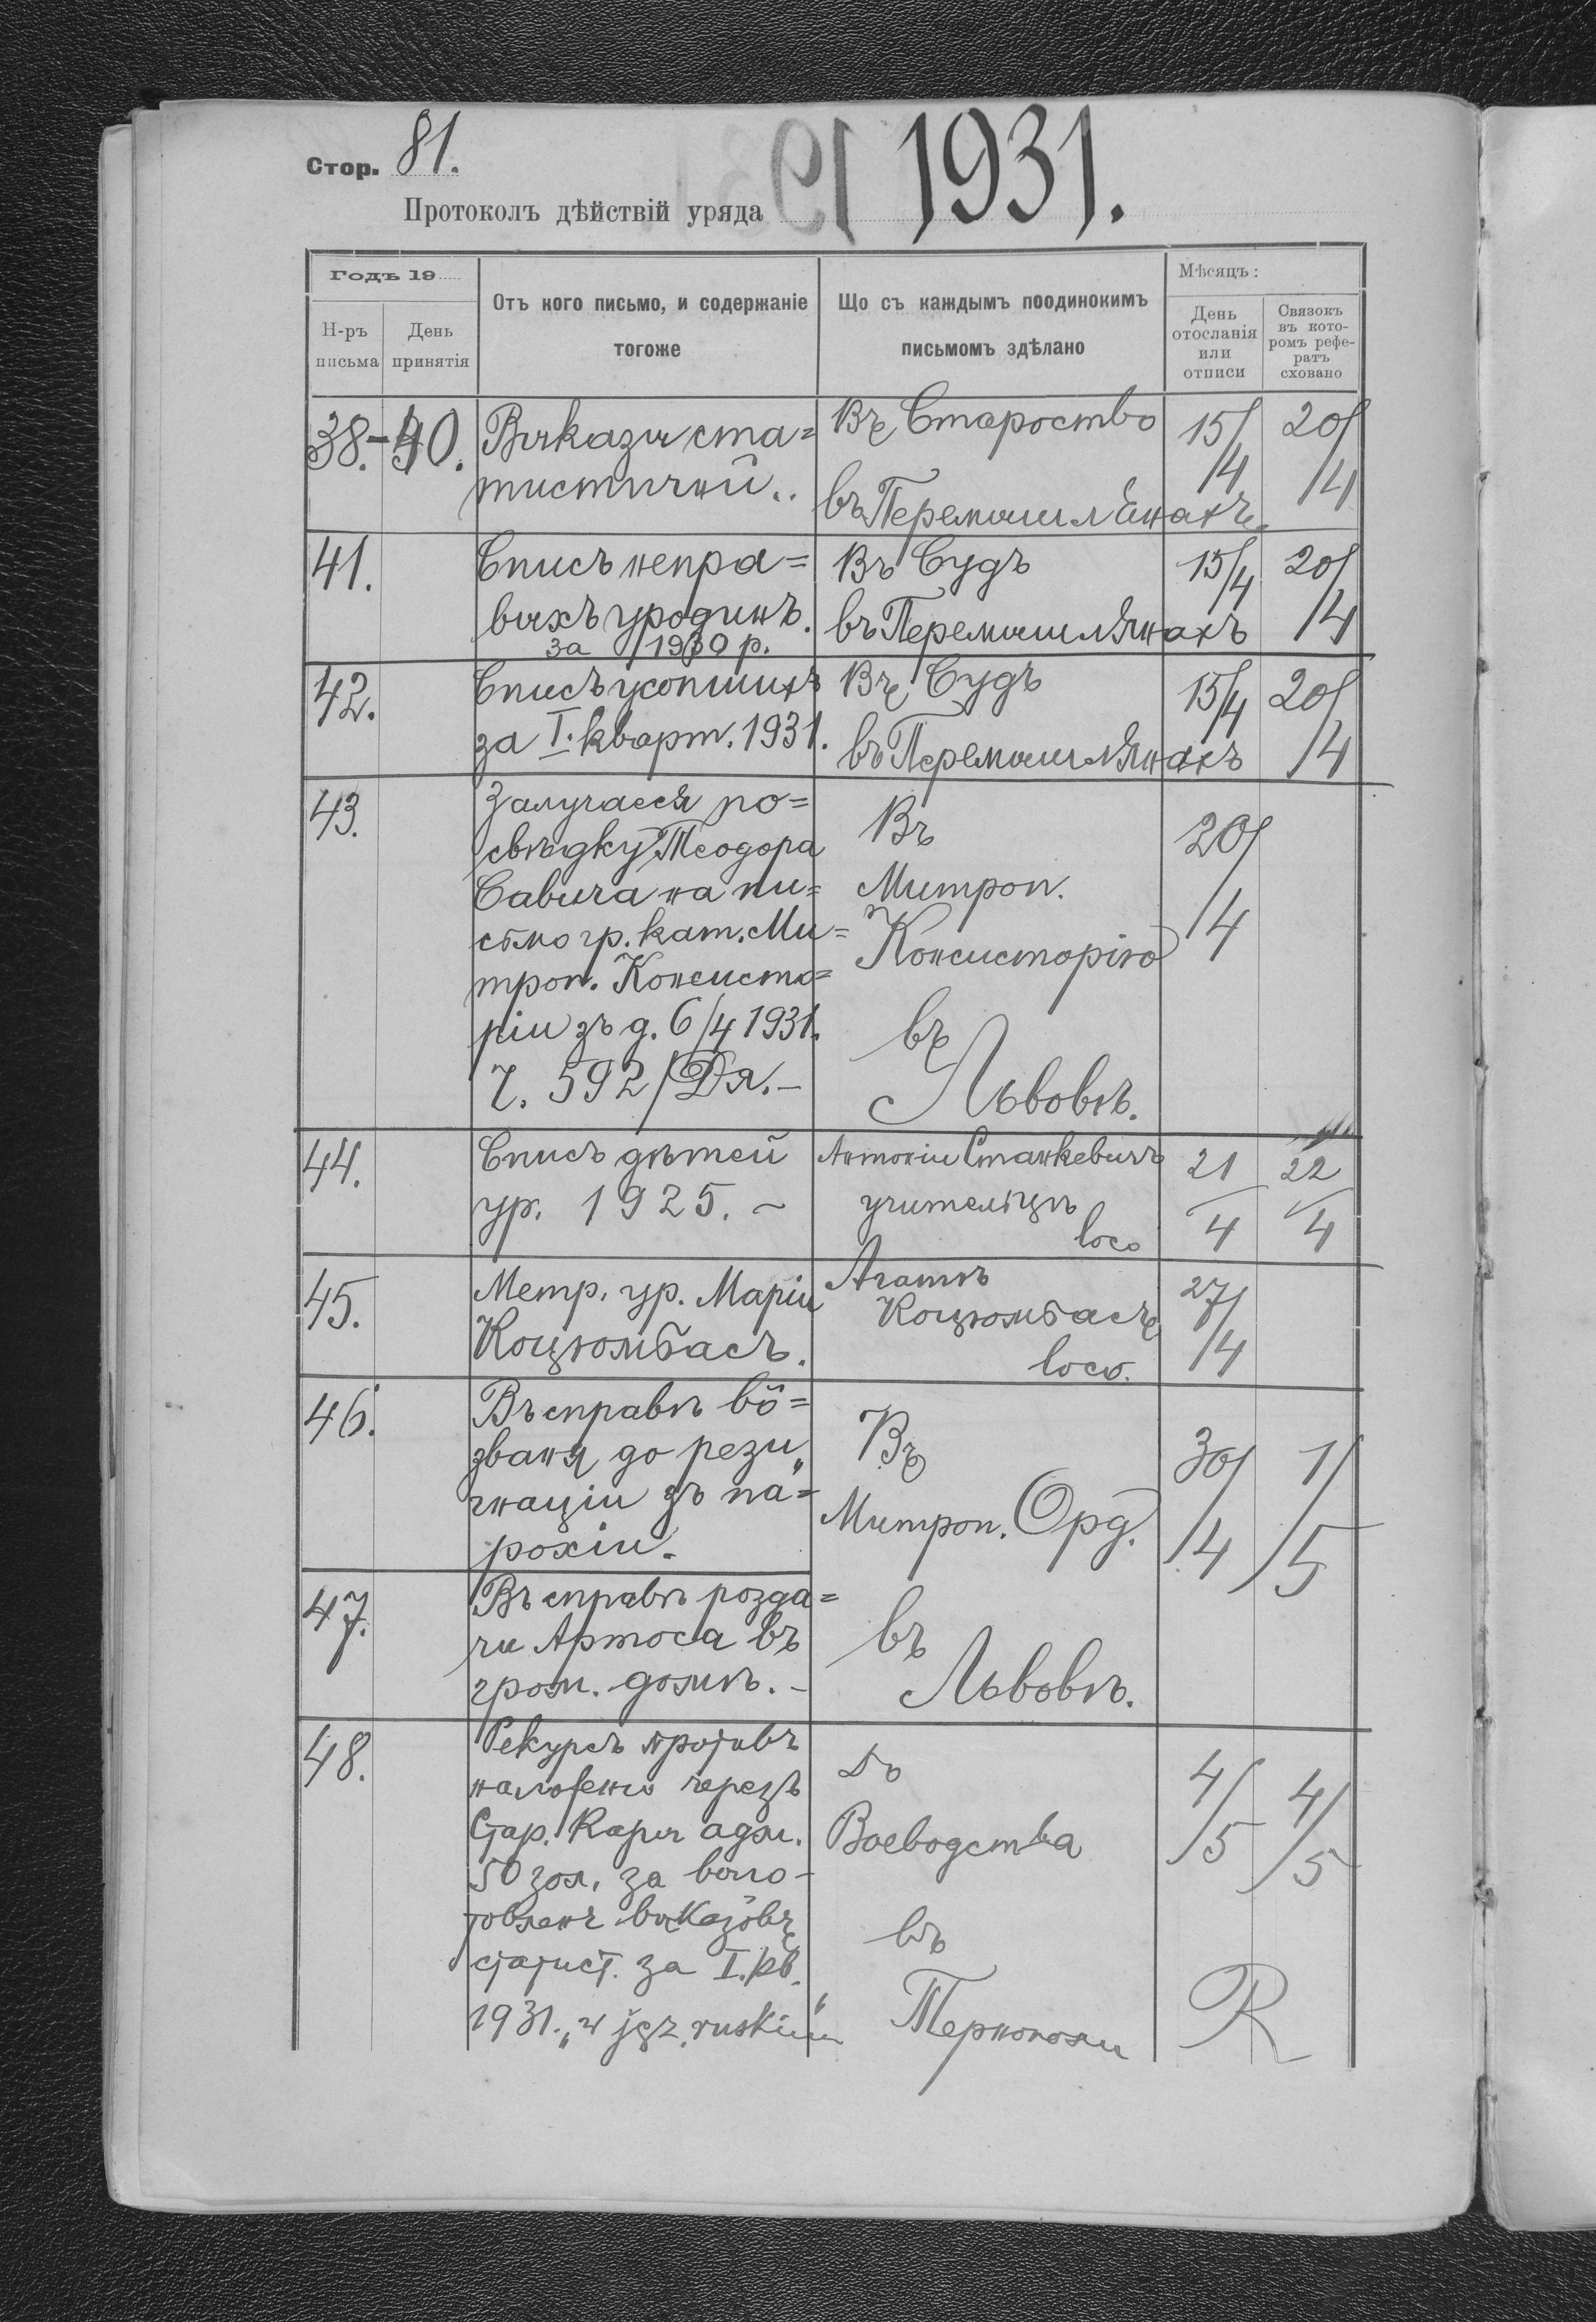 Стор. 81.
1931.
Протоколъ дѣйствій уряда
Годъ 19
Н-ръ письма
День принятія
Отъ кого письмо, и содержаніе
тогоже
Що съ каждымъ поодинокимъ
письмомъ здѣлано
Мѣсяцъ:
День
отосланія
или
отписи
Связокъ
въ кото-
ромъ рефе-
ратъ
сховано
38.-40. Выказы ста= Въ Староство 15/4 20/4
тистичнӥ.. въ Перемышлянахъ.
41. Списъ непра= Въ Судъ 15/4 20/4
выхъ уродинъ. въ Перемышлянахъ
за 1930 р.
42. Списъ усопшихъ Въ Судъ 15/4 20/4
за I. кварт. 1931. въ Перемышлянахъ
43. Залучаеся по= Въ 20/4
свѣдку Теодора
Савича на пи= Митроп.
сьмо гр. кат. Ми= Консисторію
троп. Консисто=
ріи зъ д. 6/4 1931. въ
Ч. 592/Дя.- Львовѣ.
44. Списъ дѣтей Антоніи Станкевичъ 21/4 22/4
ур. 1925. - учительцѣ
loco
45. Метр. ур. Маріи Агатѣ 27/4
Коцюмбасъ. Коцюмбасъ
loco.
46. Въ справѣ вӧ= Въ 30/4 1/5
званя до рези„
гнаціи зъ па= Митроп. Орд.
рохіи.
47. Въ справѣ розда= въ
чи Артоса въ
гром. домѣ. - Львовѣ.
48. Рекурсъ противъ До 4/5 4/5
наложеню черезъ
Стар. Кары адм. Воеводства
50 зол. за
въ
статист. за I. кв.
1931. „w jęz. ruskim“ Тернополи R